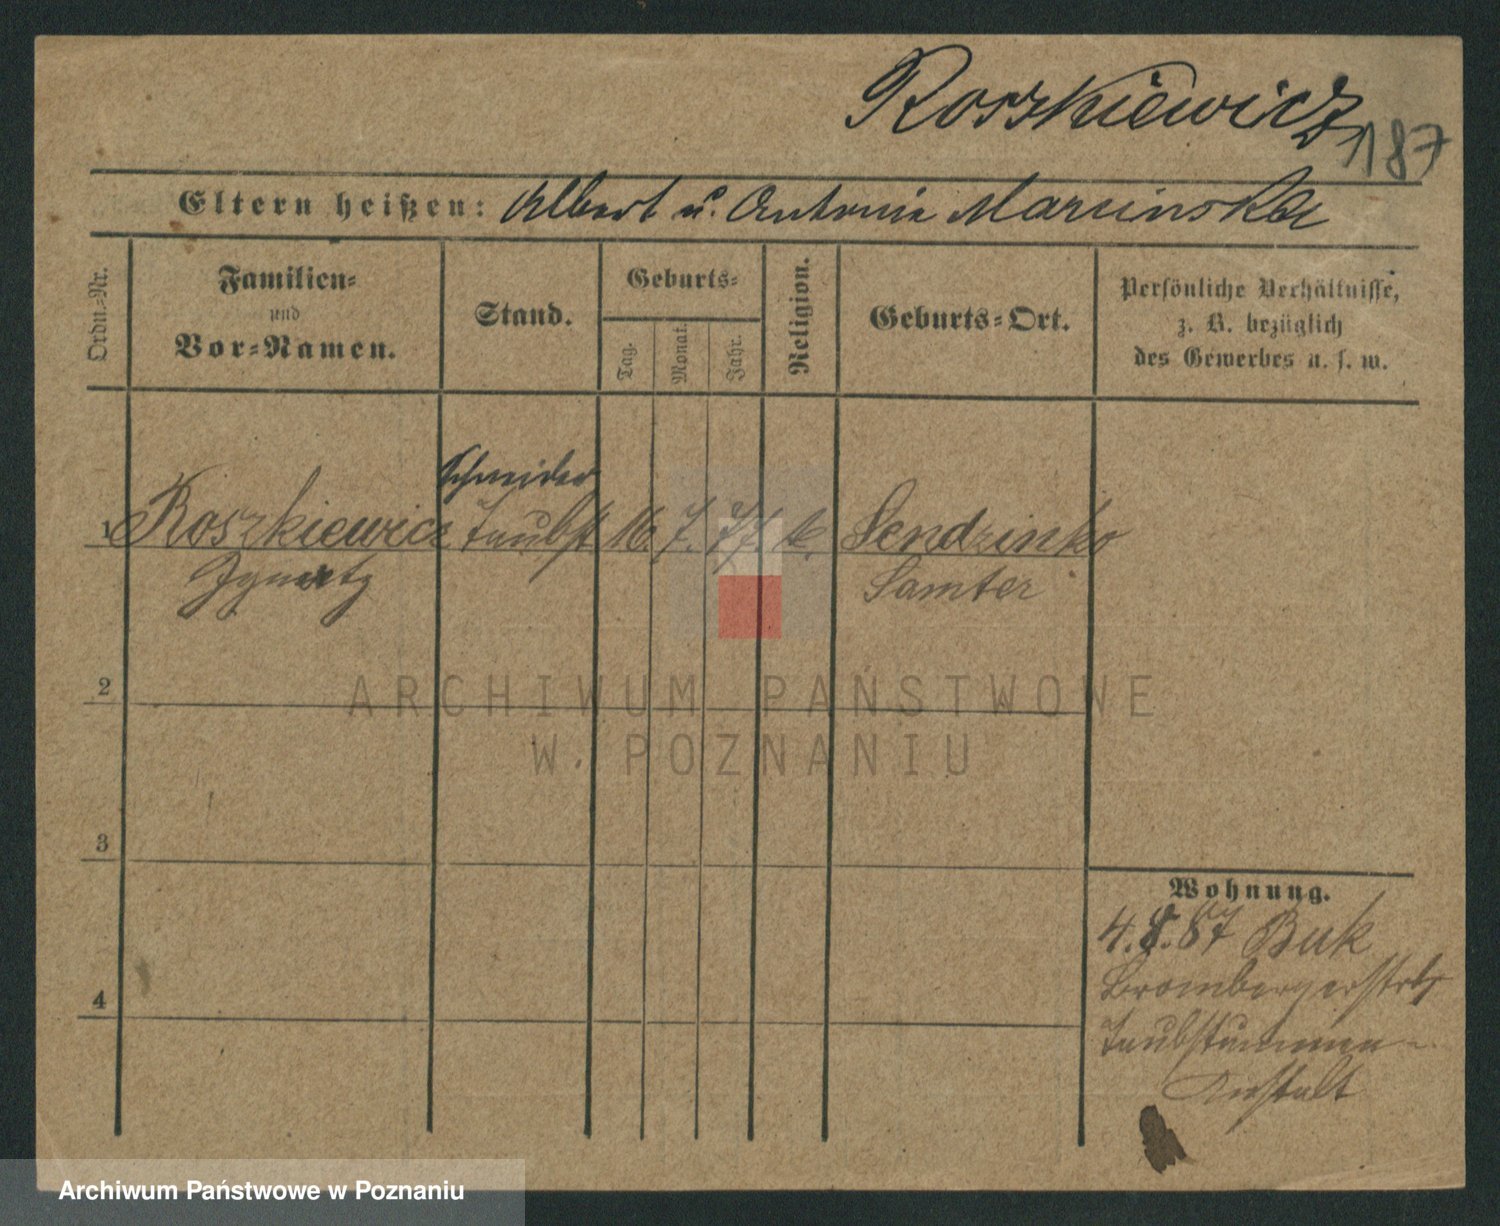 Roszkiewicz
187
Eltern heißen: Albert u. Antonie Marcinska
Ordn.-Nr.
Familien-
und
Vor-Namen.
Stand.
Geburts-
Tag.
Monat.
Jahr.
Religion.
Geburts-Ort.
Persönliche Verhältnisse,
z. B. bezüglich
des Gewerbes u. s. w.
Schneider
1 Roszkiewicz Taubst 16. 7. 77. k. Sendzinko
Ignatz Samter
2
3
4
Wohnung.
4.8.87 Buk
Brombergerstr
Taubstummen-
Anstalt
ARCHIWUM PAŃSTWOWE
W POZNANIU
Archiwum Państwowe w Poznaniu